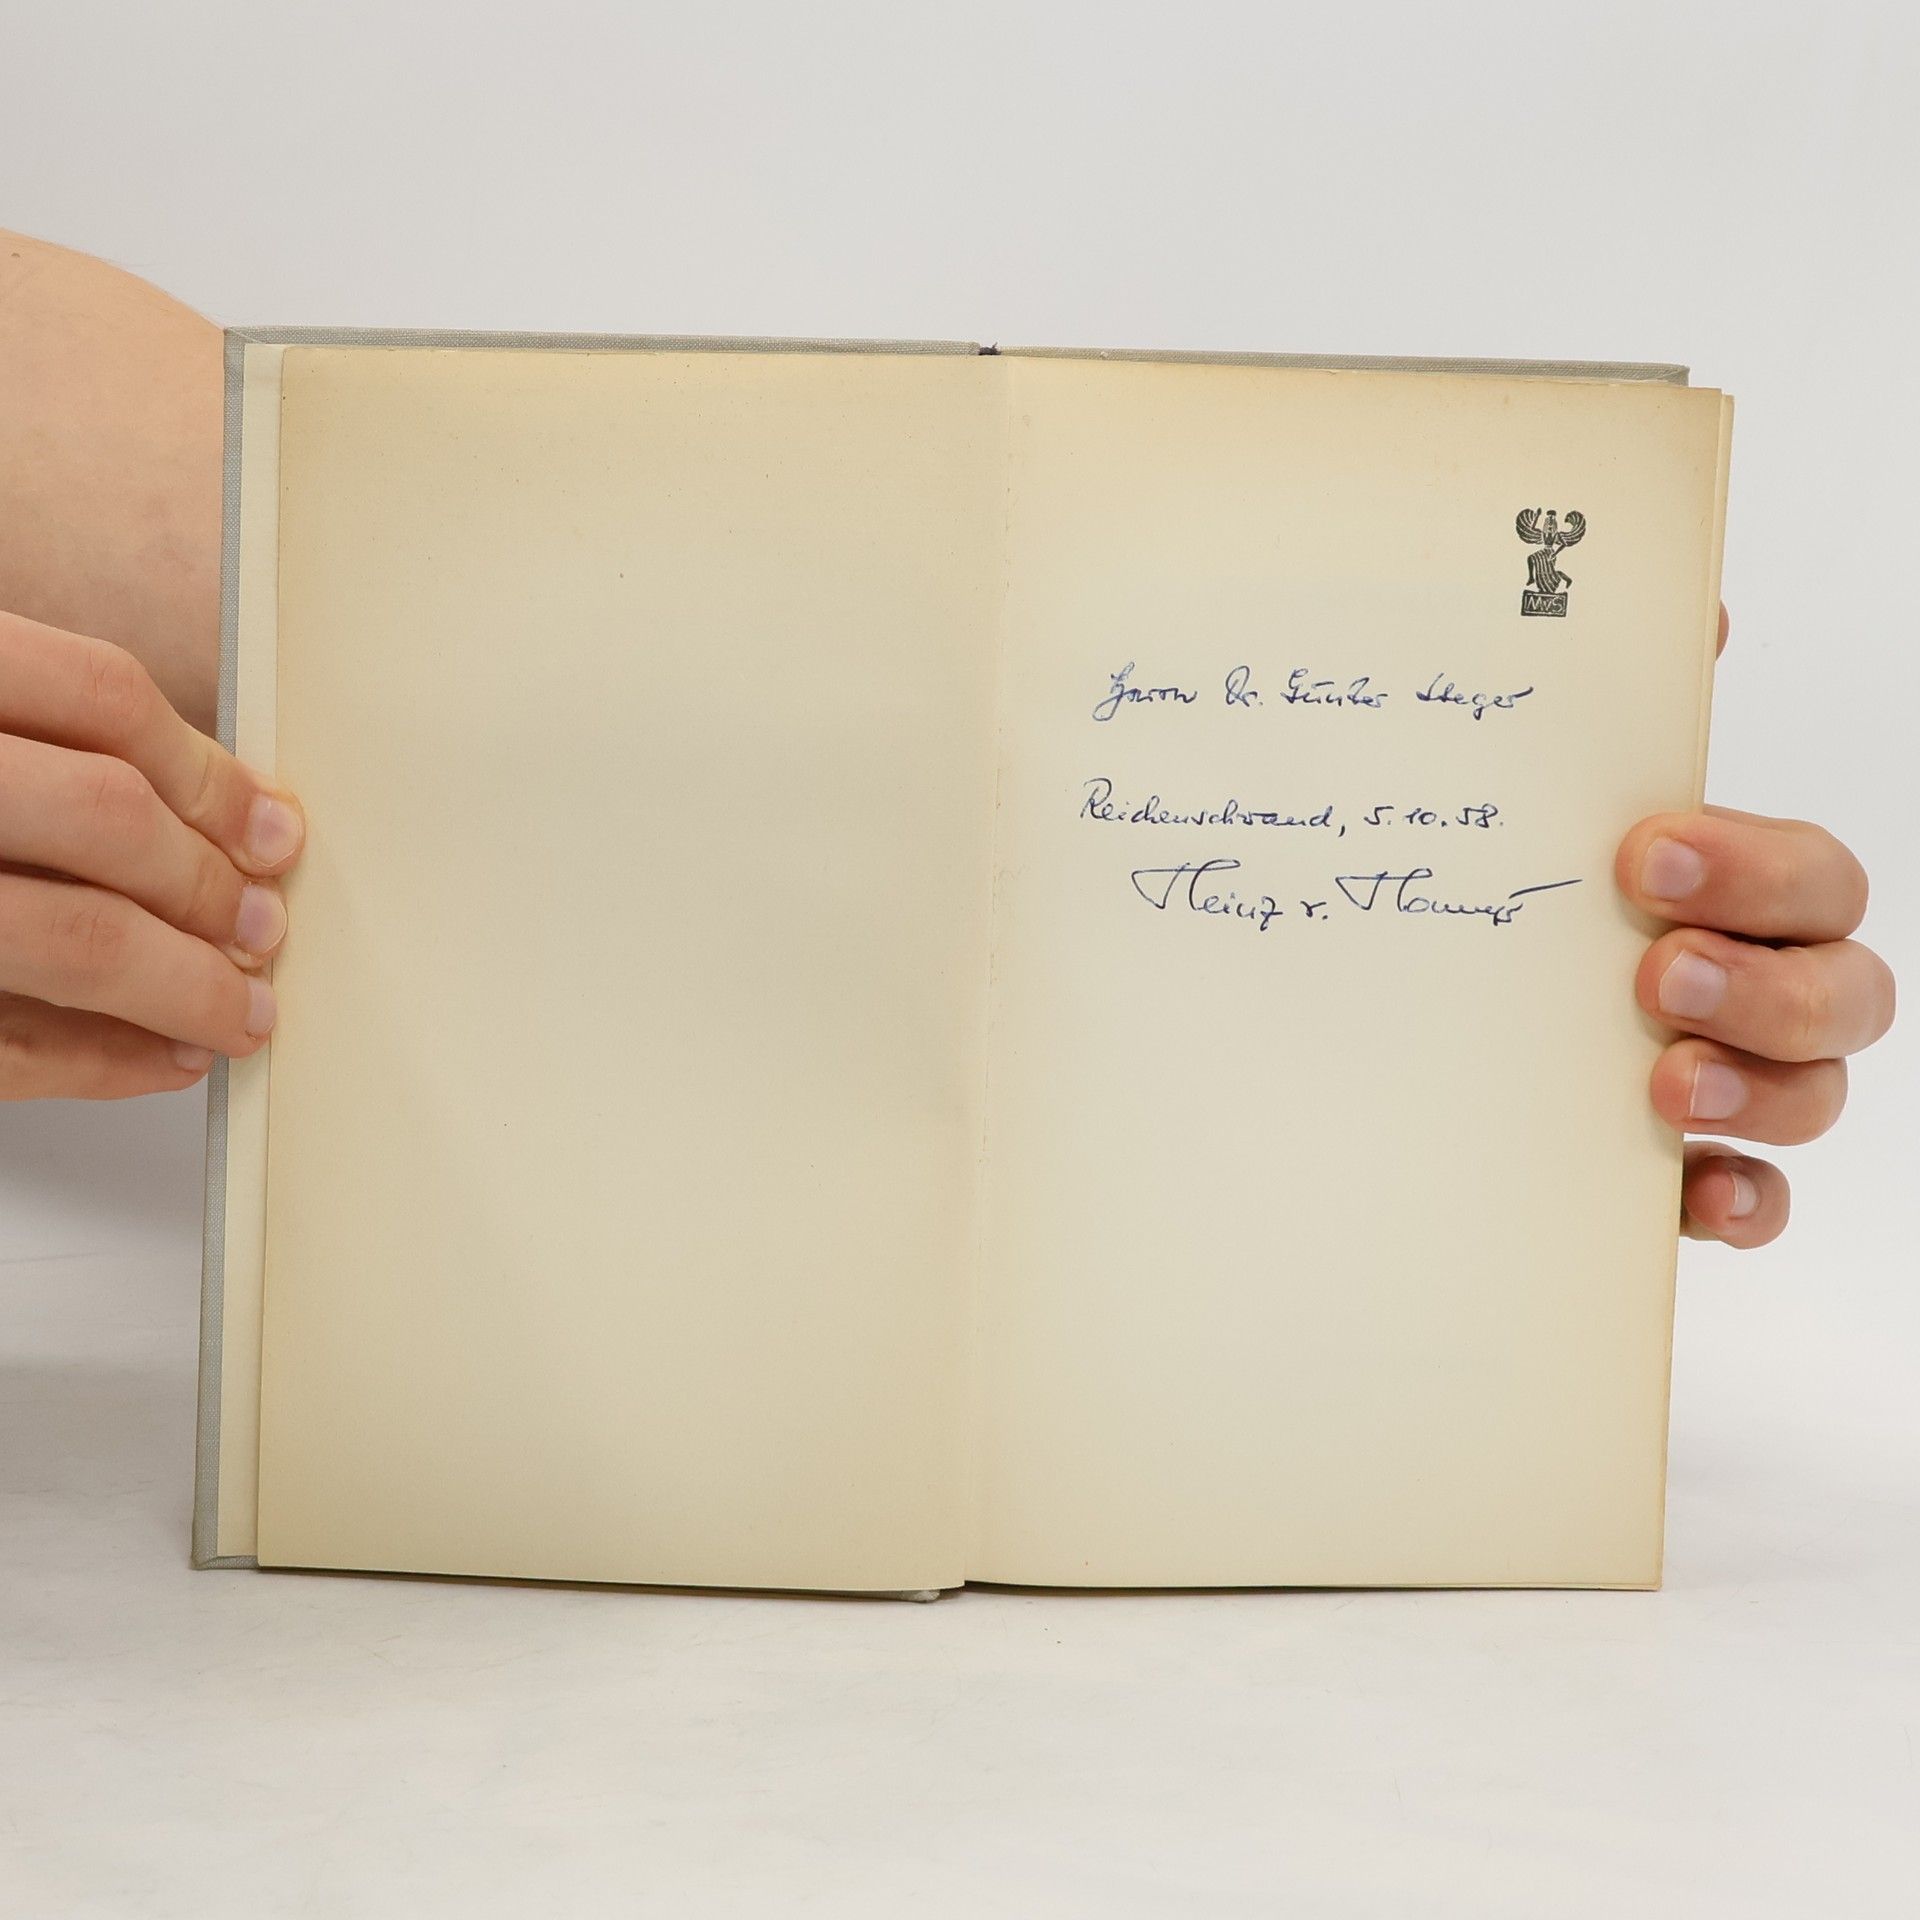 MvS
Herrn Dr. Günter Steger
Reichenschwand, 5.10.58.
Heinz v. Homeyer